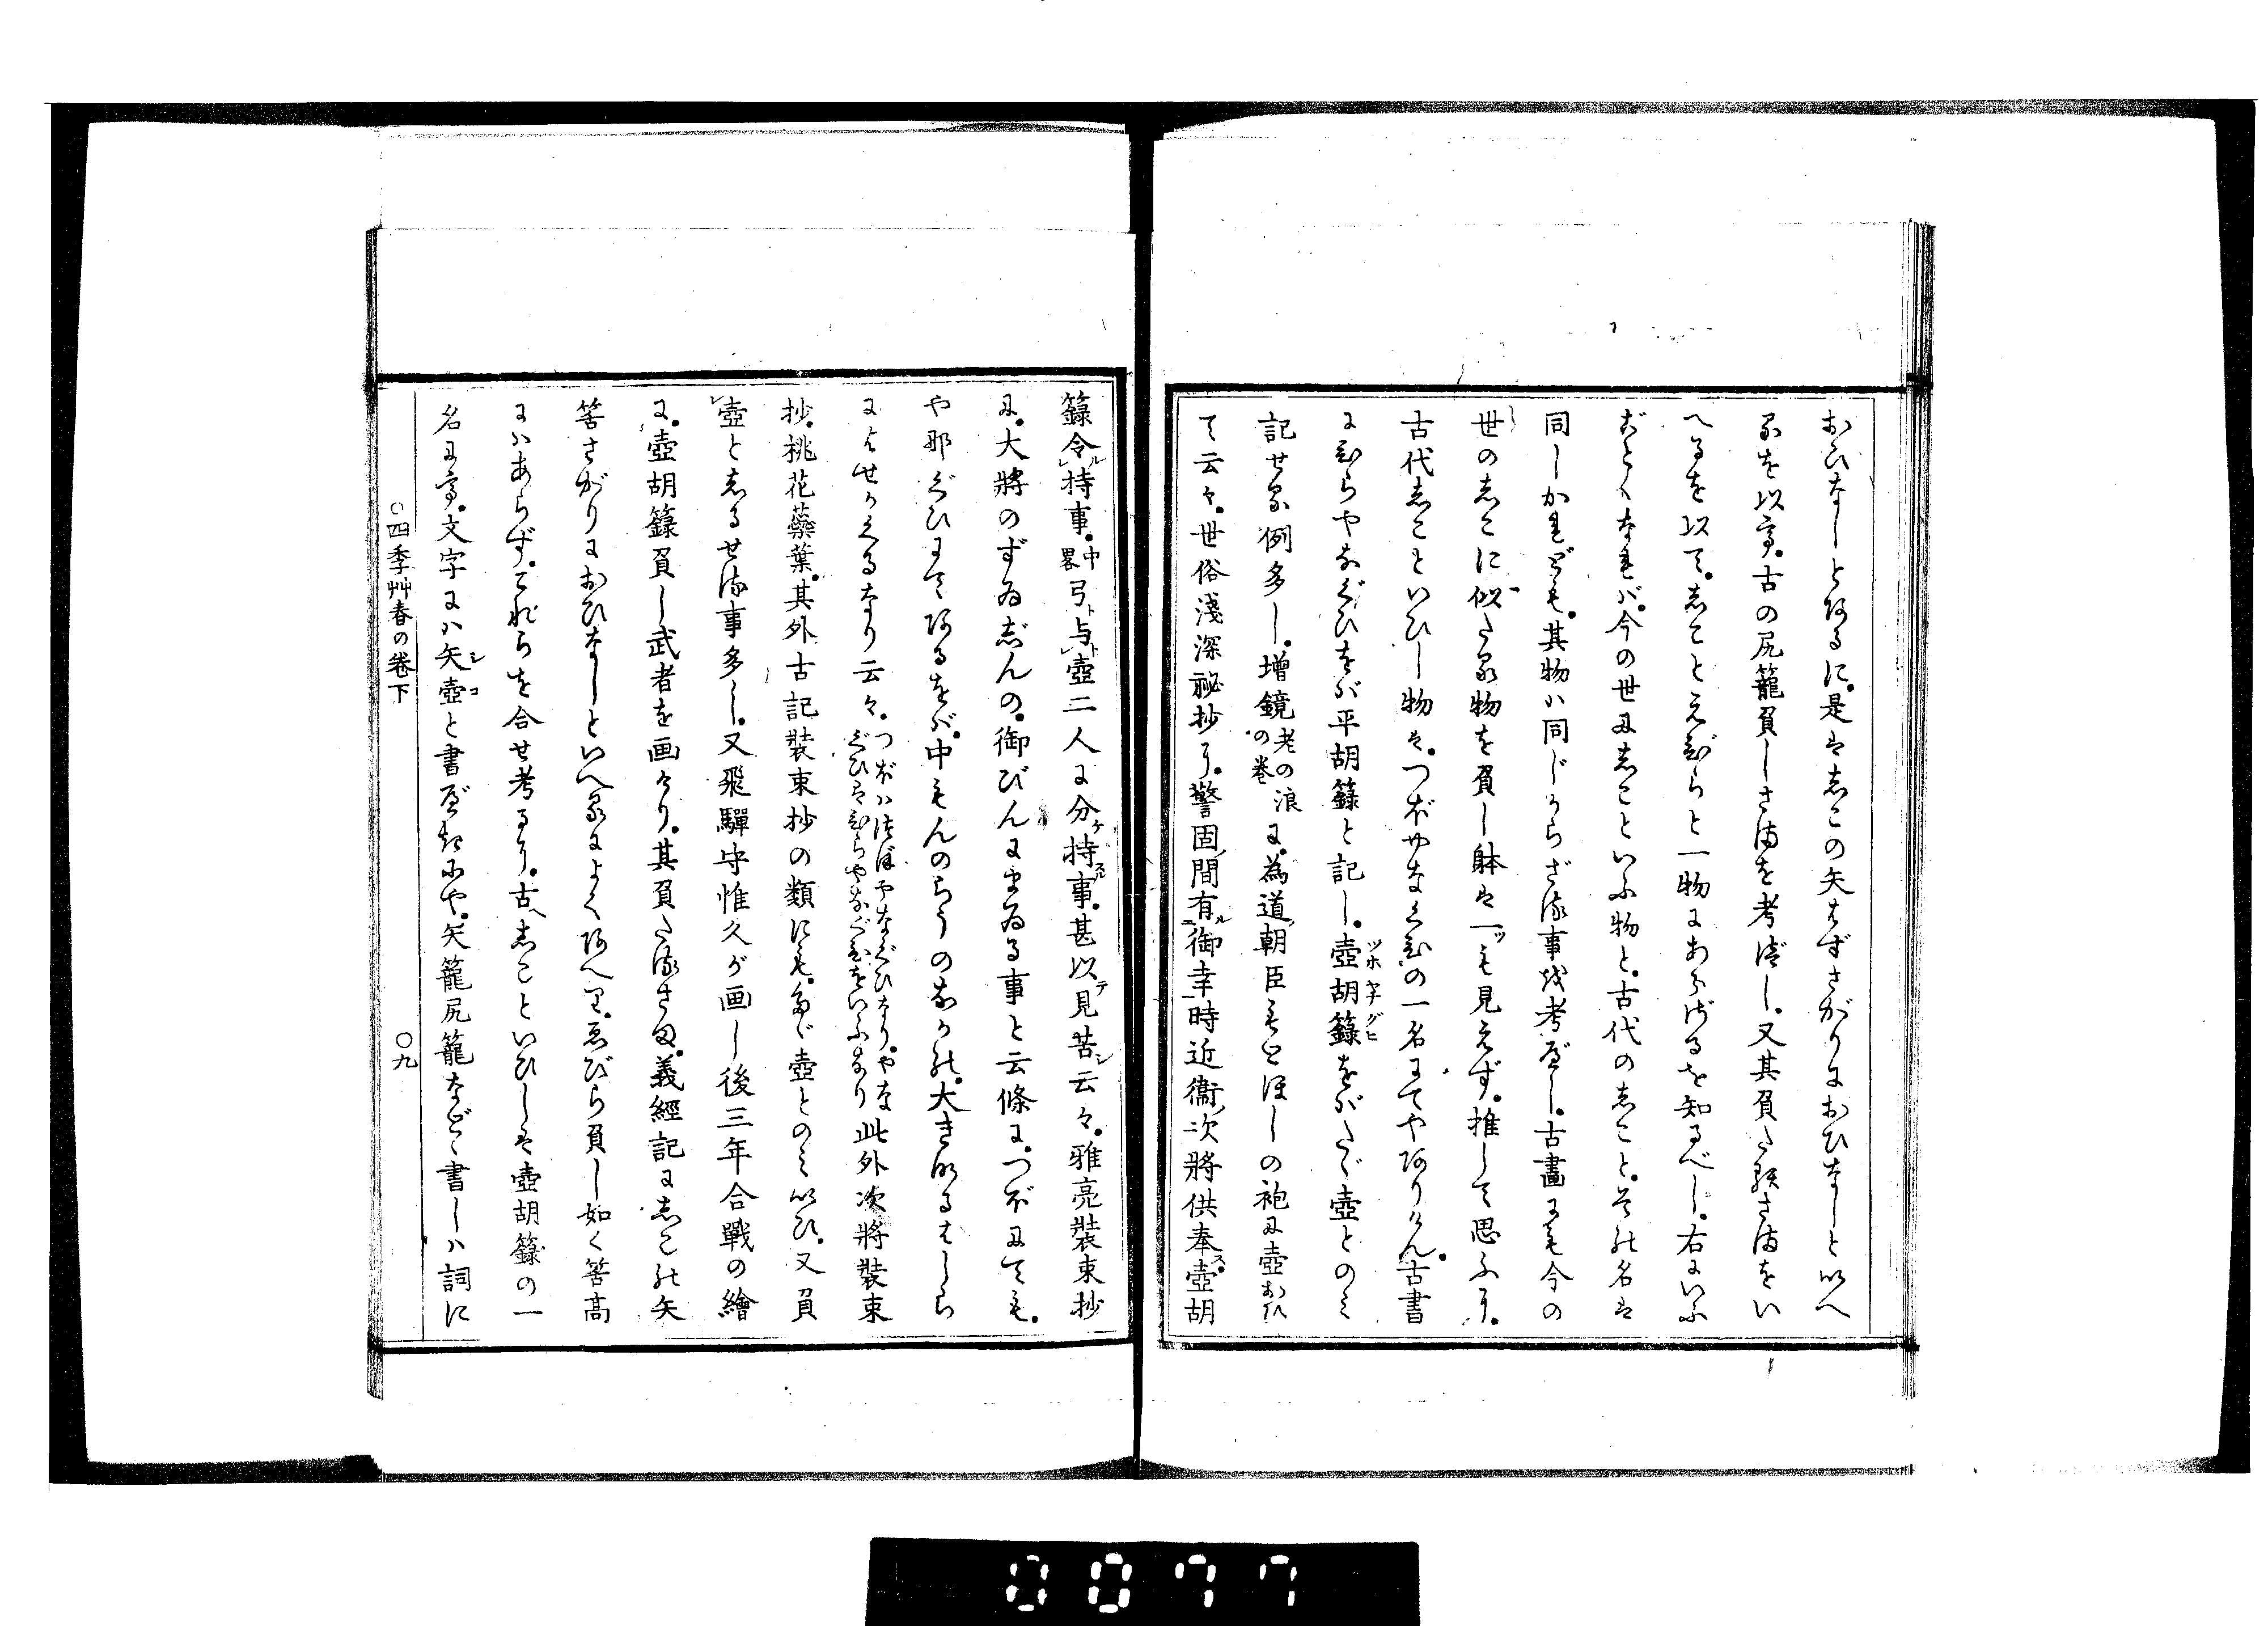 おひなしとあるに。是はしこの矢はずさがりにおひなしといへ
るを以て。古の尻籠負しさまを考べし。又其負たるさまをい
へるを以て。しことえびらと一物にあらざるを知るべし。右にいふ
ごとくなれば。今の世にしこといふ物と。古代のしこと。その名は
同しかれども。其物ハ同じからざる事を考べし。古畫にも今の
世のしこに似たる物を負し躰は一ツも見えず。推して思ふに。
古代しこといひし物は。つぼやなぐひの一名にてやありけん。古書
にひらやなぐひをバ平胡籙と記し。壺胡籙をバたゞ壺とのミ
記せる例多し。增鏡老の浪の巻に。為道朝臣もとほしの袍に壺おひ
て云々。世俗淺深祕抄に。警固間有御幸時近衞次將供奉ス。壺胡
籙令持事。中畧弓与壺二人に分持事。甚以見苦云々。雅亮裝束抄
に。大將のずゐじんの。御びんにまゐる事と云條に。つぼにても。
や那ぐひにてあるをば。中もんのらうのなかの。大きなるはしら
によせかくるなり云々。つぼハつぼやなぐひなり。やなぐひはひらやなぐひをいふなり此外次將裝束
抄。桃花蘂葉。其外古記裝束抄の類にも。たゞ壺とのミいひ。又負
壺としるせる事多し。又飛驒守惟久が画し後三年合戰の繪
に。壺胡籙負し武者を画けり。其負たるさま。義經記にしこの矢
筈さがりにおひなしといへるによくあへり。ゑびら負し如く筈高
にハあらず。これらを合せ考るに。古へしこといひしは壺胡籙の一
名にて。文字にハ矢壺と書べきにや。矢籠尻籠などゝ書しハ詞に
○四季艸春の巻下　○九
0077